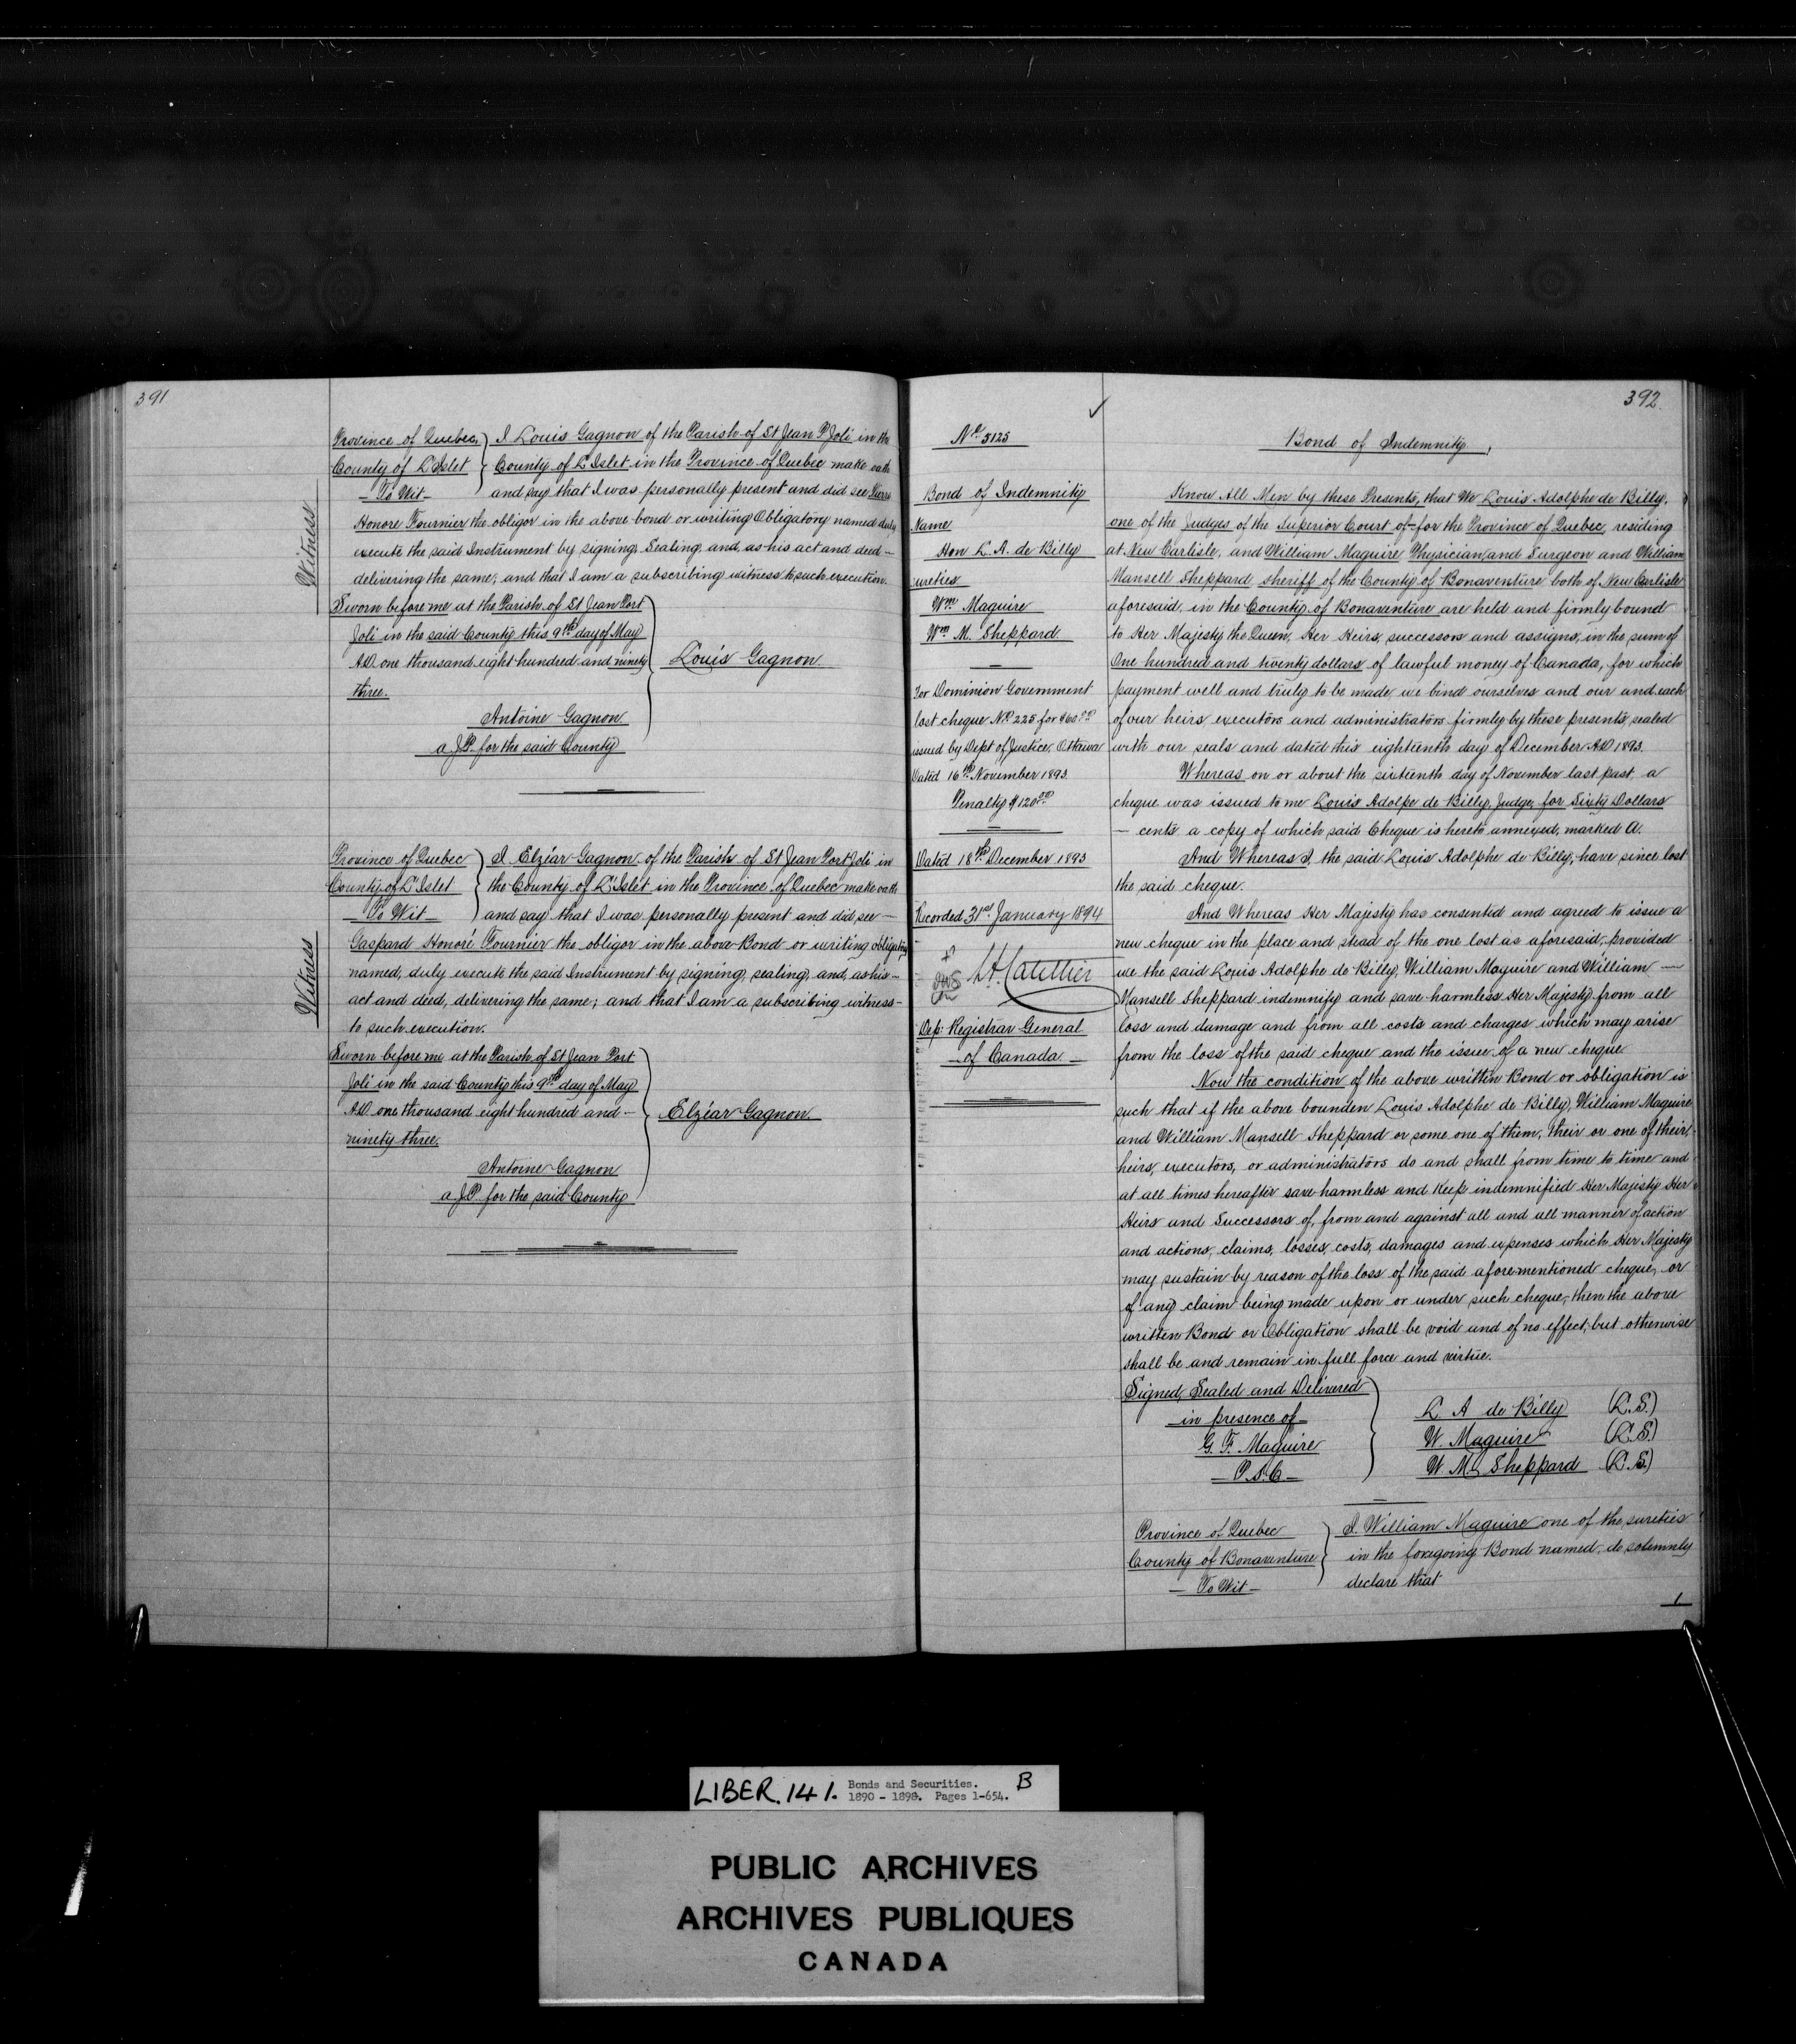 391
Witness
Province of Quebec,
County of L'Islet
- To Wit -
I Louis Gagnon of the Parish of St Jean P. Joli in the
County of L'Islet in the Province of Quebec make oath
and say that I was personally present and did see Pierre
Honore Fournier the obligor in the above bond or writing Obligatory named duly
execute the said Instrument by signing, Sealing, and, as his act and deed -
delivering the same; and that I am a subscribing witness to such execution.
Sworn before me at the Parish of St Jean Port
Joli in the said County this 9th day of May
A.D. one thousand eight hundred and ninety
three.
Louis Gagnon
Antoine Gagnon
a J.P. for the said County
Witness
Province of Quebec
County of L'Islet
- To Wit -
I Elzéar Gagnon of the Parish of St Jean Port Joli in
the County of L'Islet in the Province of Quebec make oath
and say that I was personally present and did see -
Gaspard Honoré Fournier the obligor in the above Bond or writing obligatory
named, duly execute the said Instrument by signing, sealing, and, as his -
act and deed, delivering the same; and that I am a subscribing witness -
to such execution.
Sworn before me at the Parish of St Jean Port
Joli in the said County this 9th day of May
A.D. one thousand eight hundred and -
ninety three.
Elzéar Gagnon
Antoine Gagnon
a J.P. for the said County
392
No 3125
Bond of Indemnity
Name
Hon L. A. de Billy
ureties
Wm Maguire
Wm M. Sheppard
For Dominion Government
lost cheque No 225 for $60.00
issued by Dept of Justice, Ottawa
Dated 16th November 1893.
Penalty $120.00
Dated 18th December 1893
Recorded 31st January 1894
L.A. Catellier
Dep: Registrar General
- of Canada -
Bond of Indemnity,
Know All Men by these Presents, that We Louis Adolphe de Billy,
one of the Judges of the Superior Court of - for the Province of Quebec, residing
at New Carlisle, and William Maguire Physician and Surgeon and William
Mansell Sheppard sheriff of the County of Bonaventure both of New Carlisle
aforesaid, in the County of Bonaventure are held and firmly bound
to Her Majesty the Queen, Her Heirs, successors and assigns, in the sum of
One hundred and twenty dollars of lawful money of Canada, for which
payment well and truly to be made we bind ourselves and our and each
of our heirs executors and administrators firmly by these presents, sealed
with our seals and dated this eighteenth day of December A.D. 1893.
Whereas on or about the sixteenth day of November last past, a
cheque was issued to me Louis Adolpe de Billy, Judge, for Sixty Dollars
- cents, a copy of which said Cheque is hereto annexed, marked A.
And Whereas I, the said Louis Adolphe de Billy, have since lost
the said cheque.
And Whereas Her Majesty has consented and agreed to issue a
new cheque in the place and stead of the one lost as aforesaid, provided
we the said Louis Adolphe de Billy, William Maguire and William -
Mansell Sheppard indemnify and save harmless Her Majesty from all
loss and damage and from all costs and charges which may arise
from the loss of the said cheque and the issue of a new cheque
Now the condition of the above written Bond or obligation is
such that if the above bounden Louis Adolphe de Billy, William Maguire
and William Mansell Sheppard or some one of them, their or one of their
heirs, executors, or administrators do and shall from time to time and
at all times hereafter save harmless and Keep indemnified Her Majesty Her
Heirs and Successors of, from and against all and all manner of action
and actions, claims, losses, costs, damages and expenses which Her Majesty
may sustain by reason of the loss of the said aforementioned cheque, or
of any claim being made upon or under such cheque, then the above
written Bond or Obligation shall be void and of no effect, but otherwise
shall be and remain in full force and virtue.
Signed, Sealed and Delivered
in presence of
G. F. Maguire
P.S.C
L. A de Billy (L.S.)
W. Maguire (L.S.)
W. M. Sheppard (L.S.)
Province of Quebec
County of Bonaventure
- To Wit -
I, William Maguire one of the sureties
in the foregoing Bond named, do solemnly
declare that
1
LIBER. 141. Bonds and Securities. B
1890 - 1898. Pages 1-654.
PUBLIC ARCHIVES
ARCHIVES PUBLIQUES
CANADA